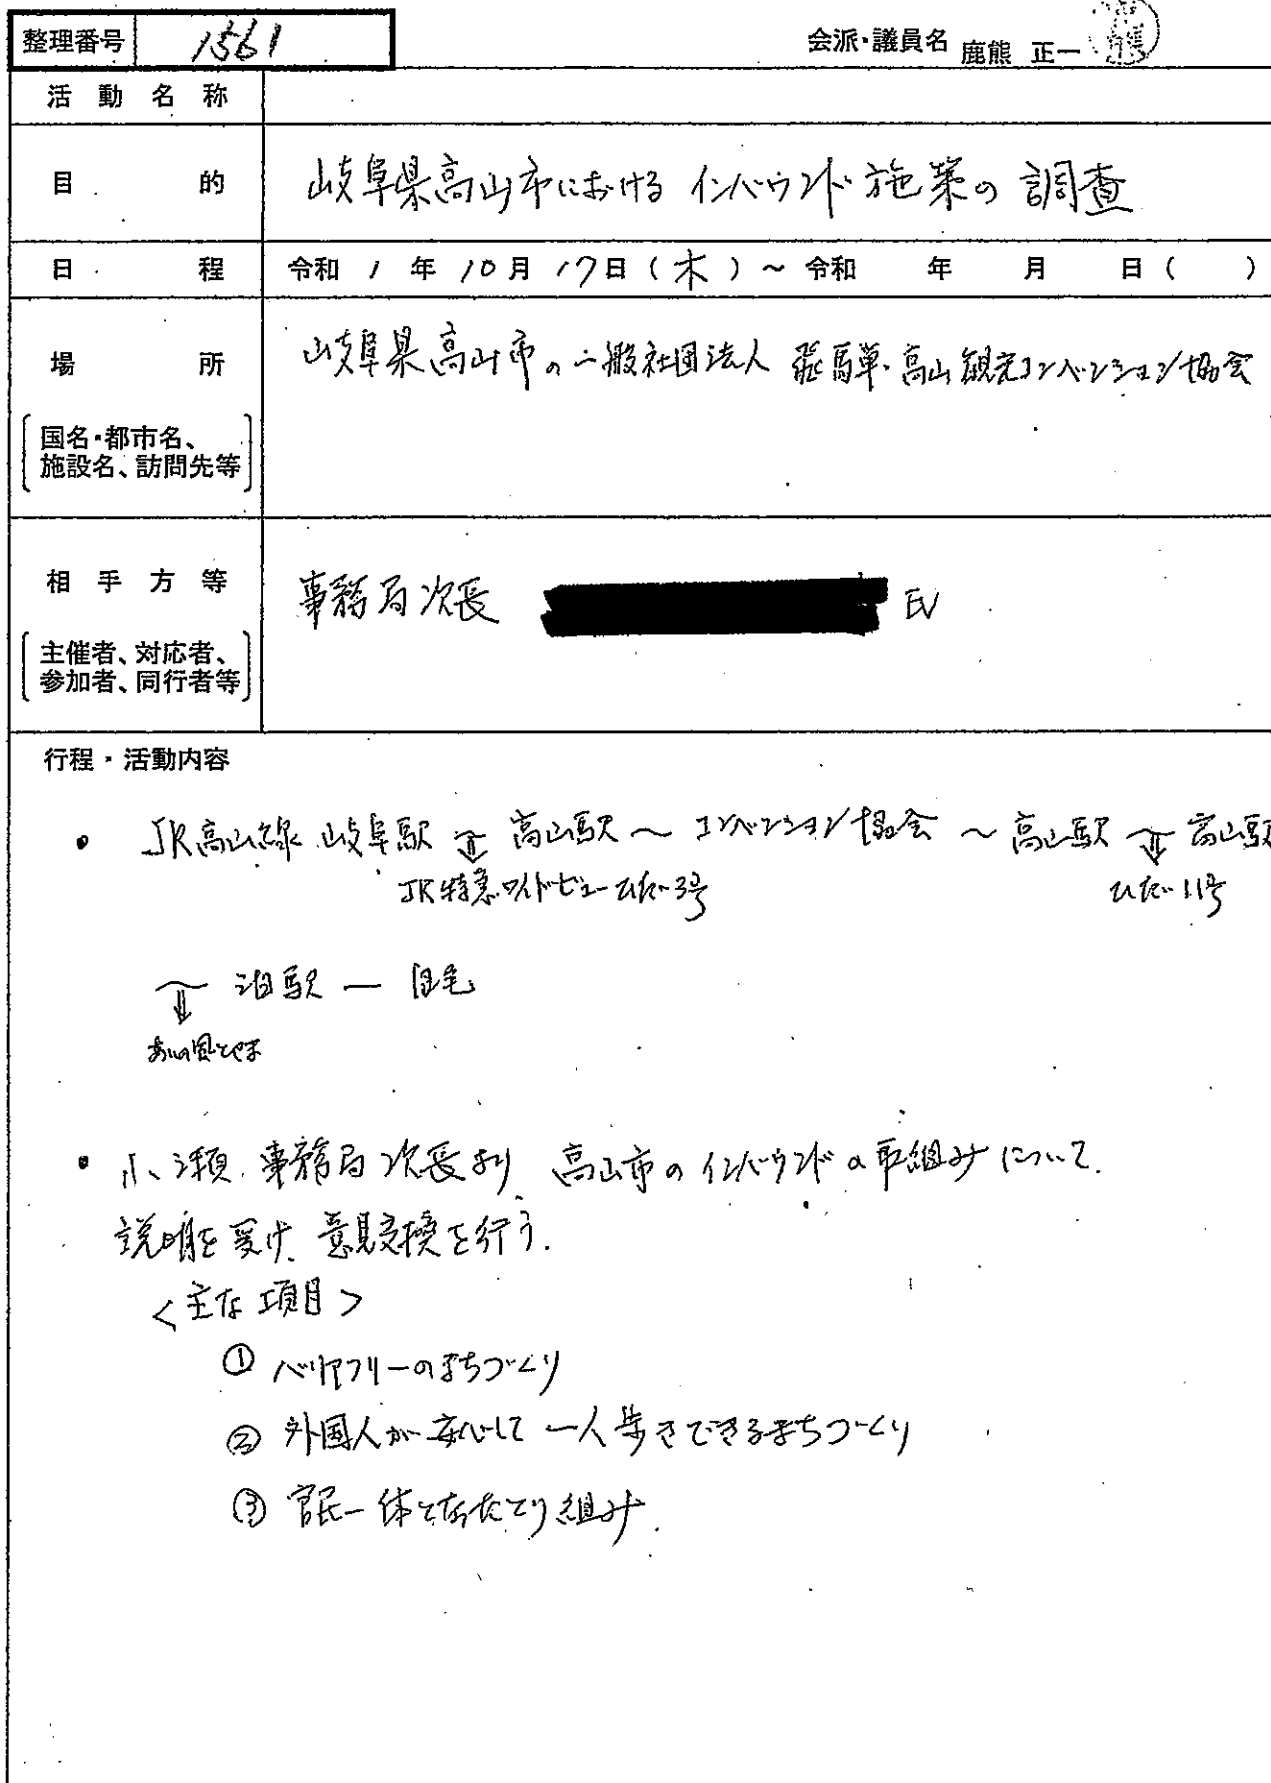 整理番号 1561 会派・議員名 鹿熊 正一
活動名称
目的 岐阜県高山市における インバウンド施策の調査
日程 令和 1 年 10 月 17 日 ( 木 ) ~ 令和 年 月 日 ( )
場所 岐阜県高山市の一般社団法人 飛騨・高山観光コンベンション協会
国名・都市名、
施設名、訪問先等
相手方等 事務局次長 氏
主催者、対応者、
参加者、同行者等
行程・活動内容
• JR高山線 岐阜駅 ⇓ 高山駅 ~ コンベンション協会 ~ 高山駅 ⇓ 高山駅
JR特急ワイドビューひだ3号 ひだ11号
⇓ 泊駅 ー 自宅
あいの風とやま
• 小瀬 事務局次長より 高山市のインバウンドの取組みについて.
説明を受け、意見交換を行う.
<主な項目>
① バリアフリーのまちづくり
② 外国人が安心して 一人歩きできるまちづくり
③ 官民一体となったとり組み.